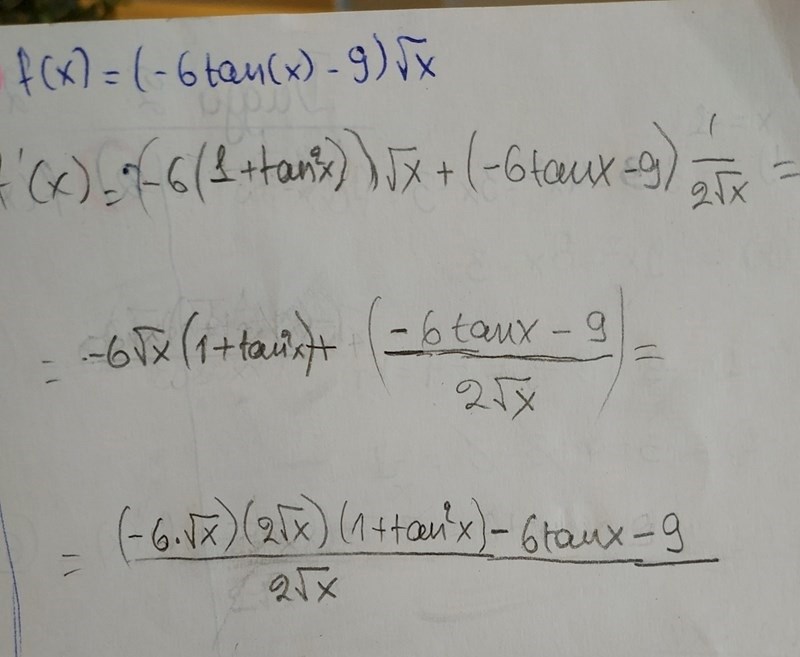 f(x) = (-6tan(x) - 9)√x
f'(x) = (-6(1+tan²x))√x + (-6tanx - 9) 1/(2√x) =
= -6√x(1+tan²x) + ((-6tanx - 9)/(2√x)) =
= ((-6·√x)(2√x)(1+tan²x) - 6tanx - 9)/(2√x)